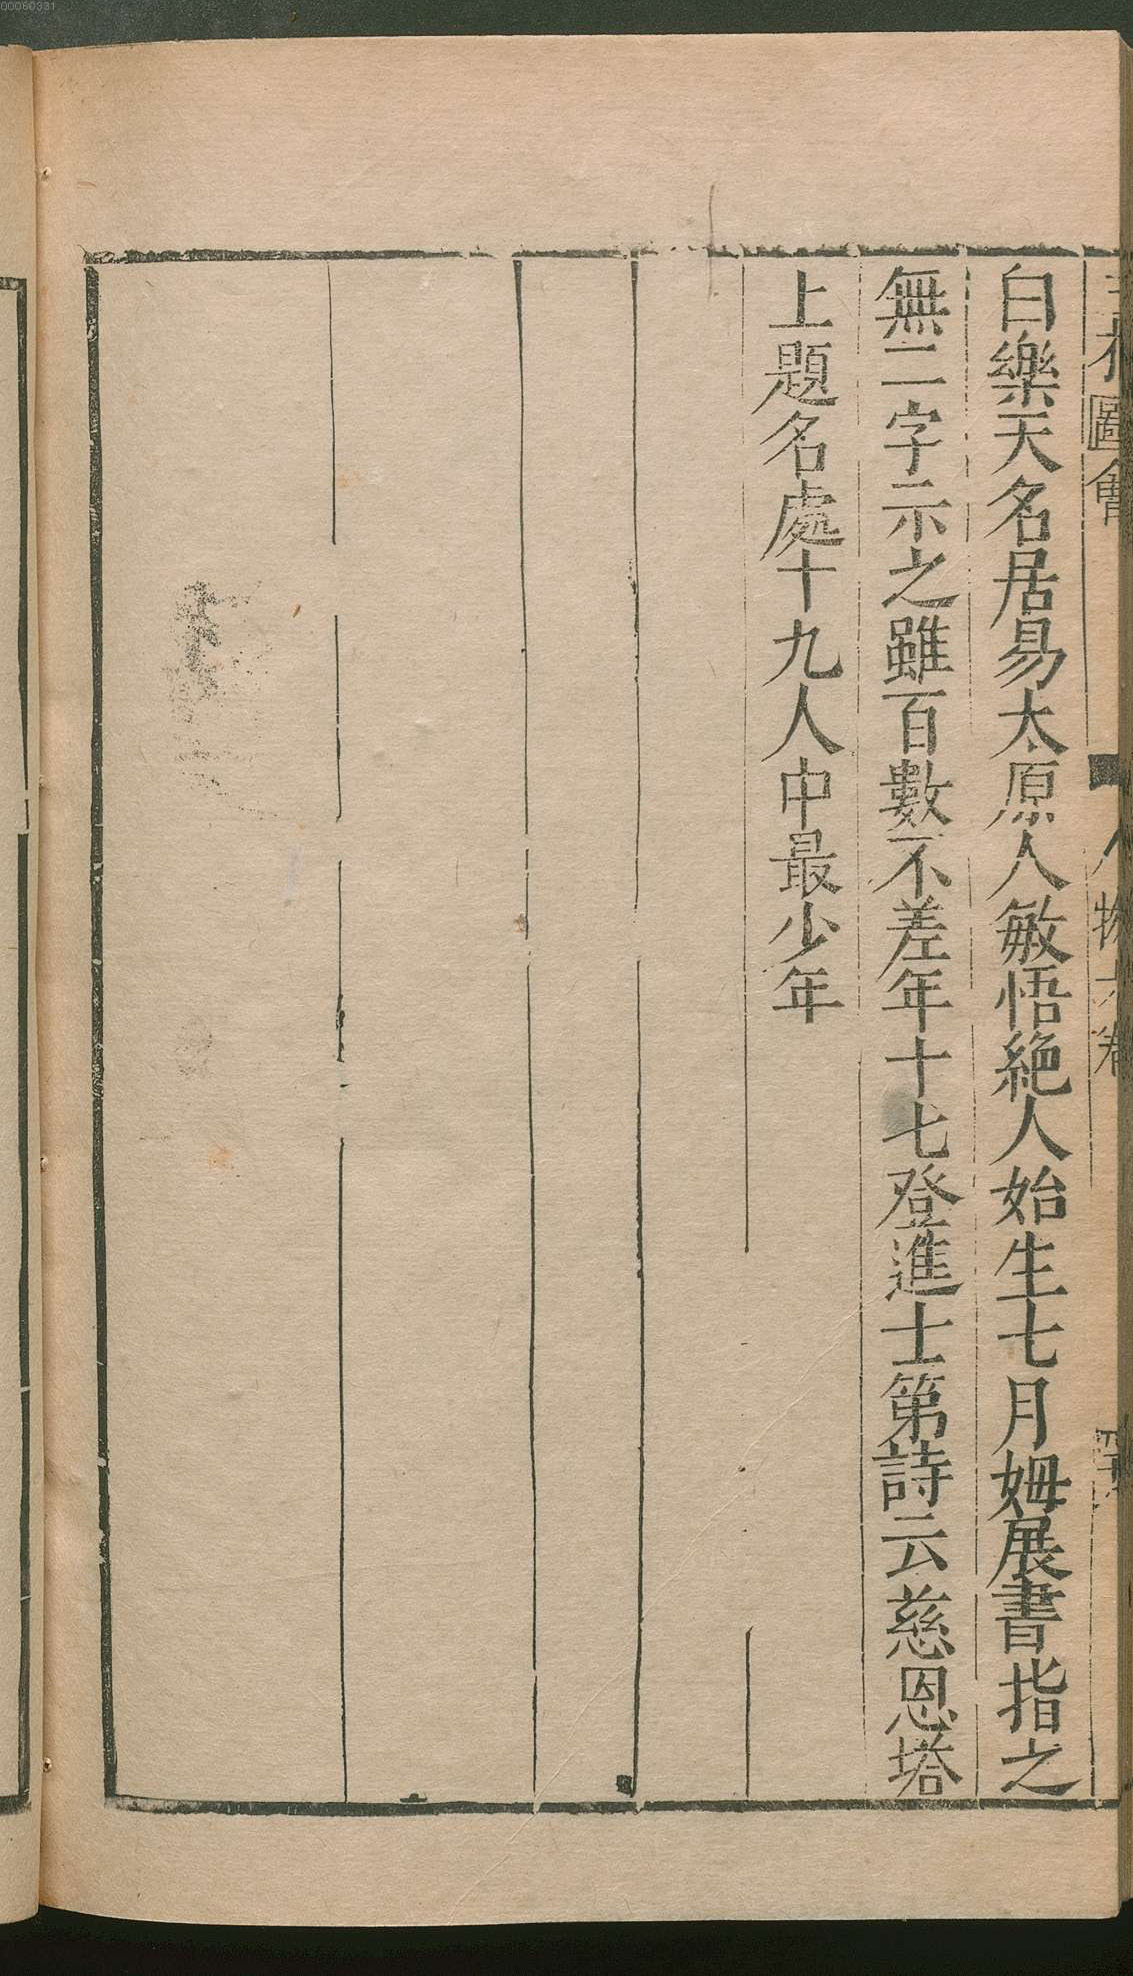 00060331
圖會
物
卷
白樂天名居易太原人敏悟絶人始生七月姆展書指之
無二字示之雖百數不差年十七登進士第詩云慈恩塔
上題名處十九人中最少年